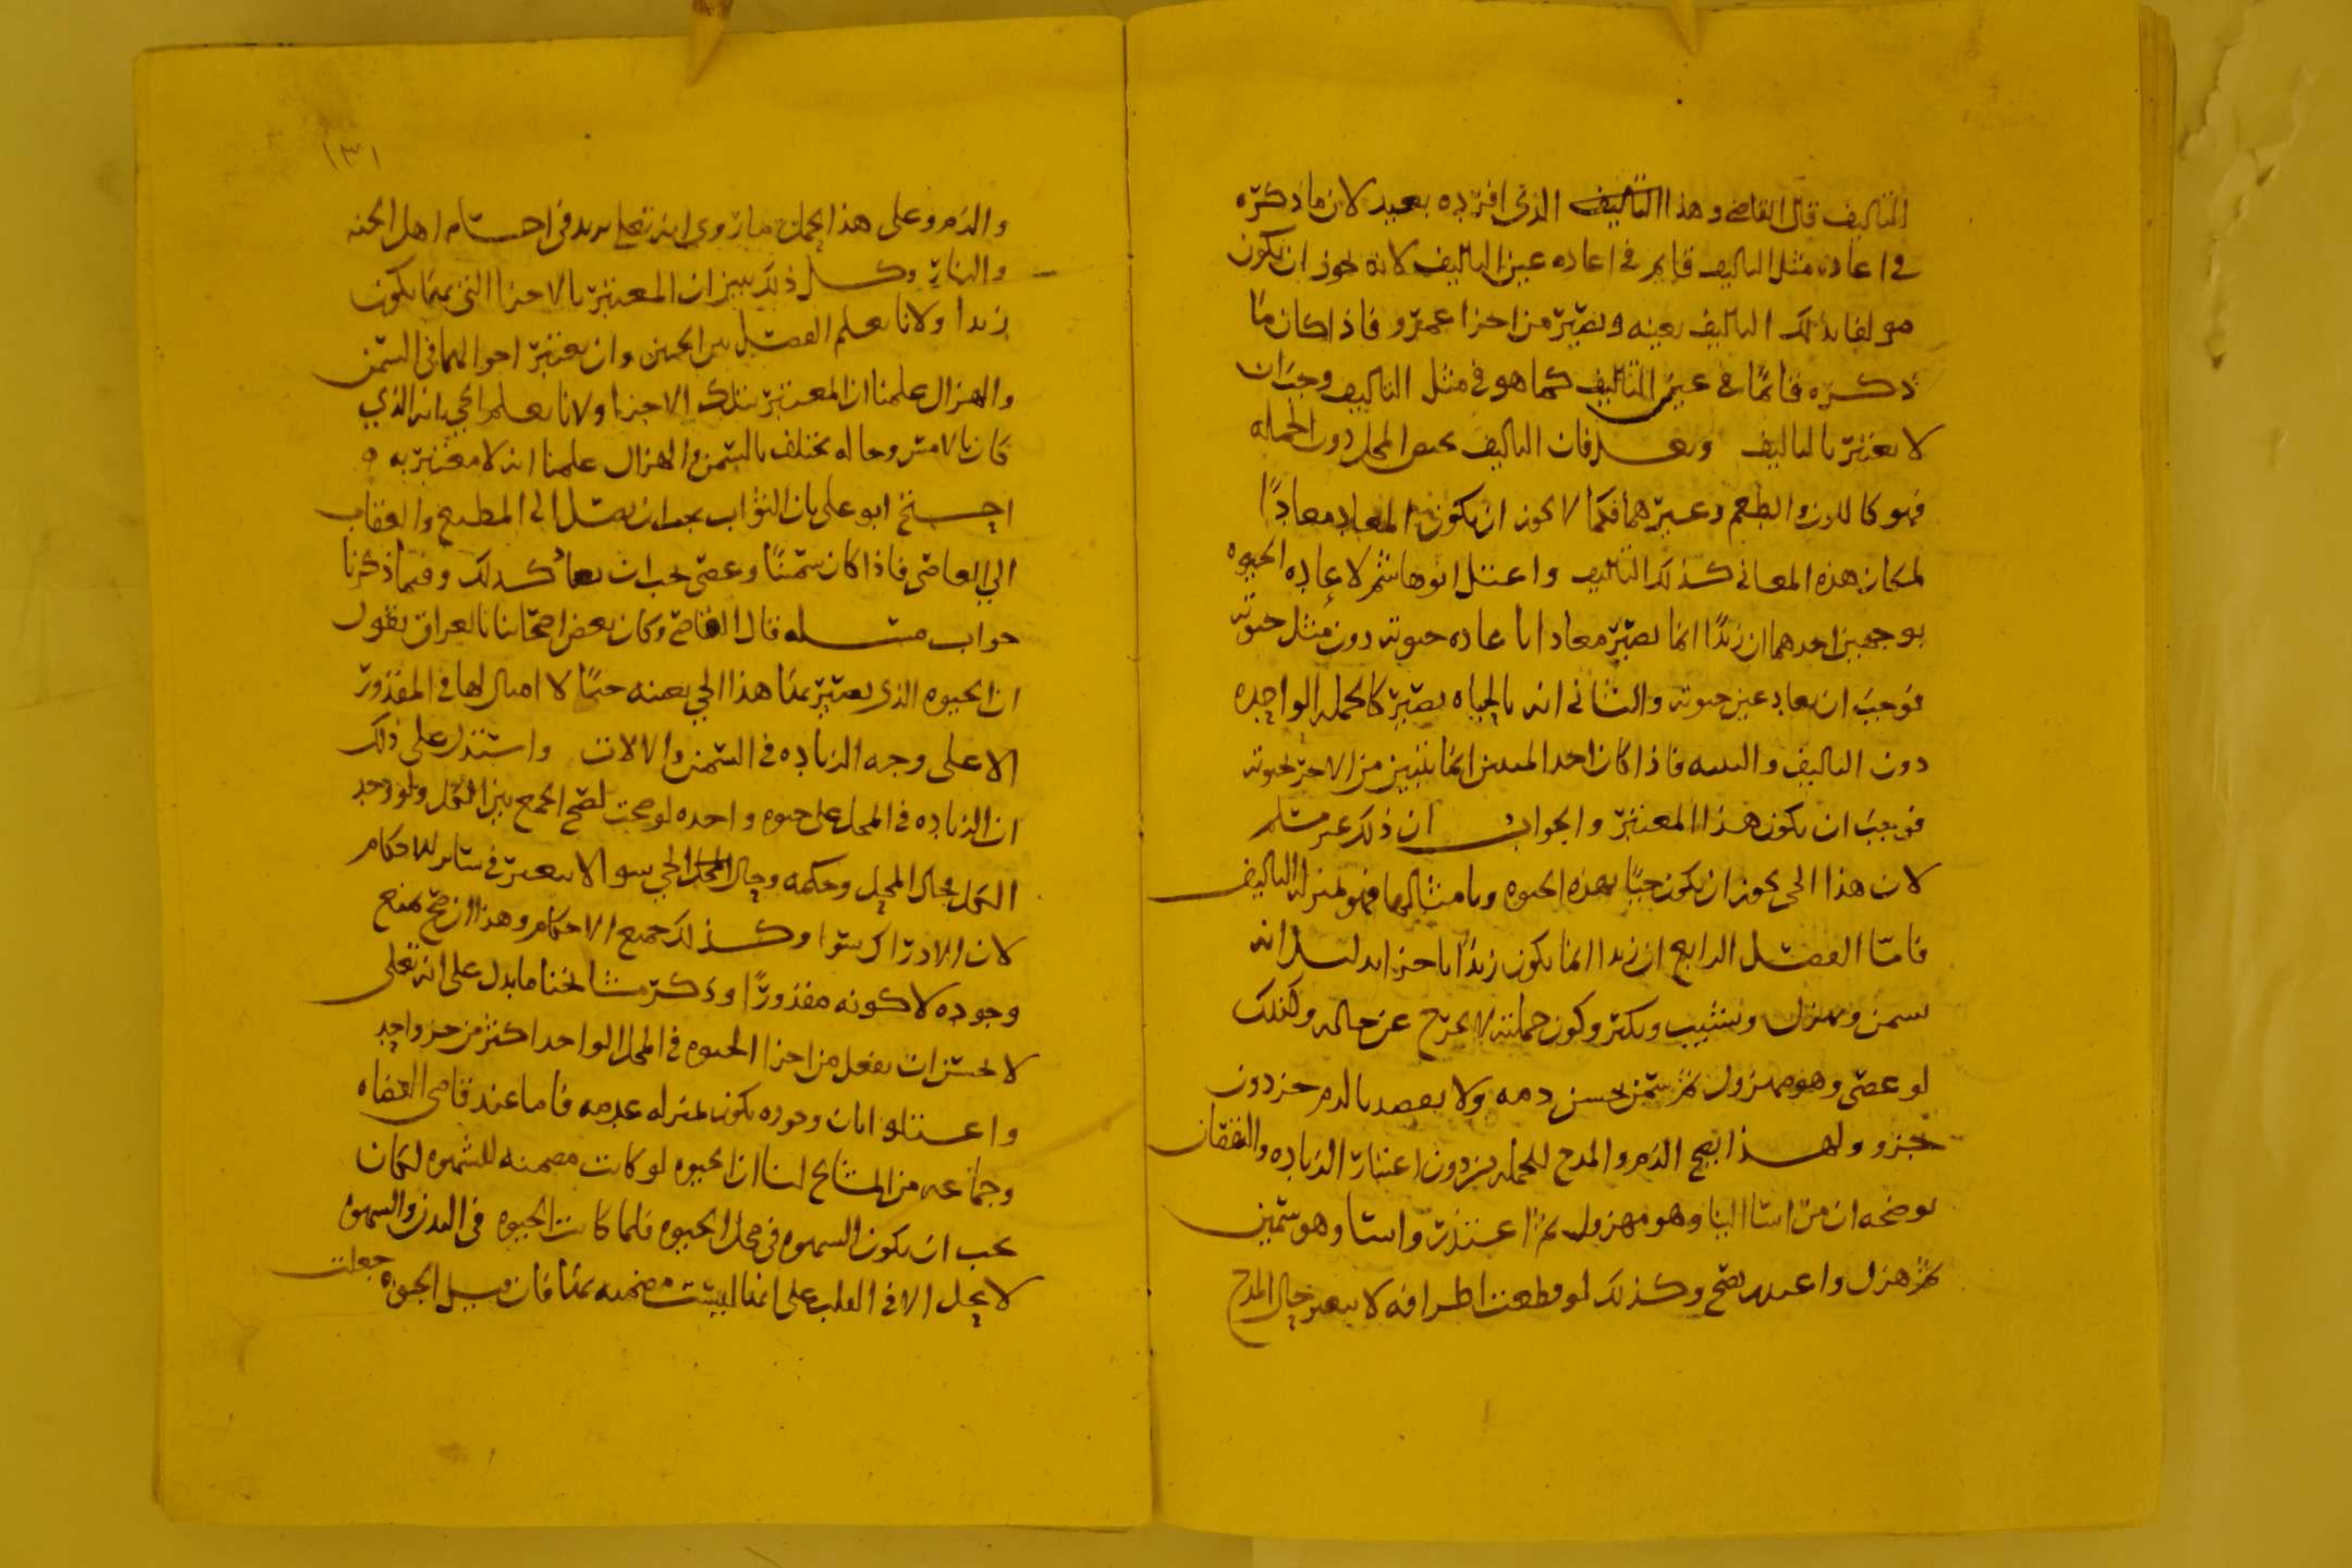 التاليف قال القاضي وهذا التاليف الذي افرده بعيد لان ما ذكره
في اعاده مثل التاليف قايم في اعاده عين التاليف لانه يجوز ان يكون
مولفا بذلك التاليف بعينه ويصير من اجزا عمرو فاذا كان ما
ذكره قائما في عين التاليف كما هو في مثل التاليف وجب ان
لا يعتبر بالتاليف وبعد فان التاليف يختص المحل دون الجمله
فهو كاللون والطعم وغيرهما فكما لا يجوز ان يكون المعاد معادا
لمكان هذه المعاني كذلك التاليف واعتل ابو هاشم لاعاده الحيوه
بوجهين احدهما ان زيدا انما يصير معادا باعاده حيوته دون مثل حيوته
فوجب ان يعاد عين حيوته والثاني انه بالحياه يصير كالجمله الواحده
دون التاليف والبنيه فاذا كان احد المبنيين انما يتبين من الاخر بحيوته
فيجب ان يكون هذا المعتبر والجواب ان ذلك غير مسلم
لان هذا الحي يجوز ان يكون حيا بهذه الحيوه وبامثالها فهو بمنزله التاليف
فاما الفصل الرابع ان زيدا انما يكون زيدا باجزايه لسل انه
يسمن ويهزل ويشيب ويكبر وكون جملته لا يخرج عن حاله وكذلك
لو عصى وهو مهزول ثم سمن يحسن ذمه ولا يقصد بالذم جز دون
جزو ولهذا يصح الذم والمدح للجمله من دون اعتبار الزياده والنقصان
يوضحه ان من اسا الينا وهو مهزول ثم اعتذر واسا وهو سمين
ثم هزل واعتذر يصح وكذلك لو قطعت اطرافه لا يتغير حال المدح
١٣١
والذم وعلى هذا يحمل ما روي انه تعالى يزيد في اجسام اهل الجنه
والنار وكل ذلك يبين ان المعتبر بالاجزا التي بها يكون
زيدا ولانا نعلم الفصل بين الحيين وان يعتبر احوالهما في السمن
والهزال علمنا ان المعتبر بتلك الاجزا ولانا نعلم الحي انه الذي
كان بالامس وحاله يختلف بالسمن والهزال علمنا انه لا معتبر به
احتج ابو علي بان الثواب يجب ان يصل الى المطيع والعقاب
الي العاصي فاذا كان سمينا وعصى يجب ان يعاد كذلك وفيما ذكرنا
جواب مسله قال القاضي وكان بعض اصحابنا بالعراق يقول
ان الحيوه الذي يصير بها هذا الحي بعينه حيا لا امثال لها في المقدور
الا على وجه الزياده في السمن والالات واستدل على ذلك
ان الزياده في المحل على حيوه واحده لو صحت لصح الجمع بين الكل ولو وجد
الكل فحال المحل وحكمه وحال الحي سوا لا يتغير في سائر الاحكام
لان الادراك سوا وكذلك جميع الاحكام وهذا ان صح يمنع
وجوده لا كونه مقدورا وذكر مشائخنا ما يدل على انه تعالى
لا يحسن ان يفعل من اجزا الحيوه في المحل الواحد اكثر من جزو واحد
واعتلوا بان وجوده يكون بمنزله عدمه فاما عند قاضي القضاه
وجماعه من المشائخ لنا ان الحيوه لو كانت مضمنه للشهوه لكان
يجب ان يكون الشهوه في محل الحيوه فلما كانت الحيوه في البدن والشهوه
لا يحل الا في القلب على انها ليست مضمنه بها فان قيل الحيوه جعلت